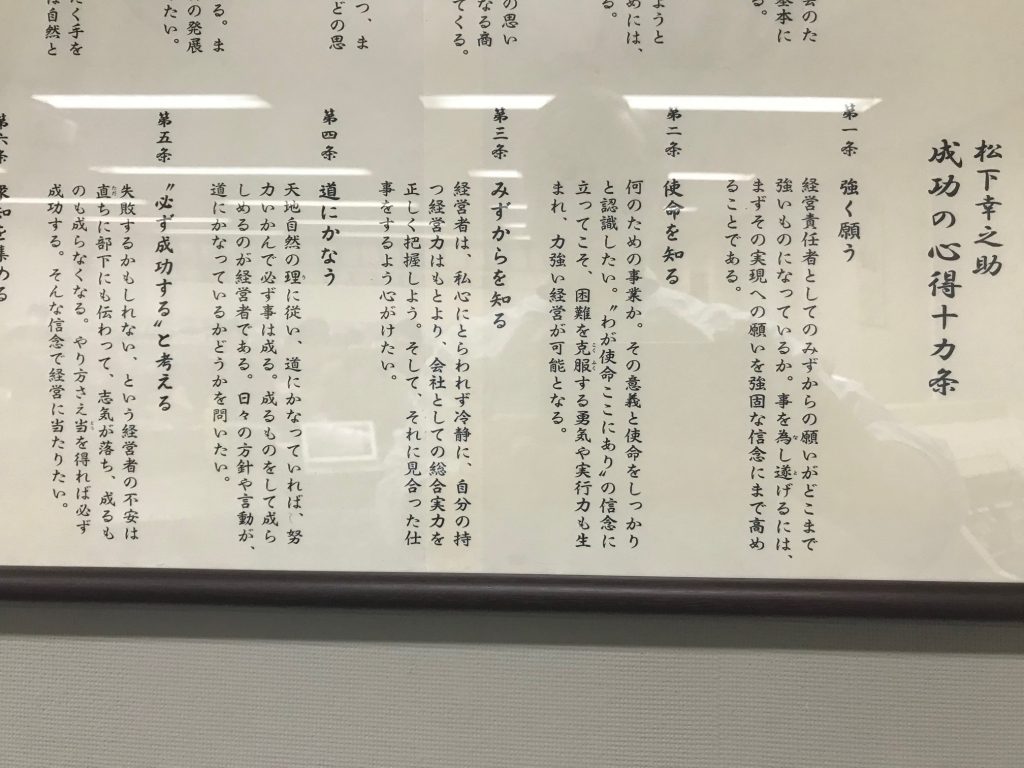 会のた
基本に
る。
ようと
めには、
る。
の思い
なる商
てくる。
つ、ま
どの思
る。ま
の発展
たい。
たく手を
は自然と
松下幸之助
成功の心得十カ条
第一条　強く願う
経営責任者としてのみずからの願いがどこまで
強いものになっているか。事を為し遂げるには、
まずその実現への願いを強固な信念にまで高め
ることである。
第二条　使命を知る
何のための事業か。その意義と使命をしっかり
と認識したい。〝わが使命ここにあり〟の信念に
立ってこそ、困難を克服する勇気や実行力も生
まれ、力強い経営が可能となる。
第三条　みずからを知る
経営者は、私心にとらわれず冷静に、自分の持
つ経営力はもとより、会社としての総合実力を
正しく把握しよう。そして、それに見合った仕
事をするよう心がけたい。
第四条　道にかなう
天地自然の理に従い、道にかなっていれば、努
力いかんで必ず事は成る。成るものをして成ら
しめるのが経営者である。日々の方針や言動が、
道にかなっているかどうかを問いたい。
第五条　〝必ず成功する〟と考える
失敗するかもしれない、という経営者の不安は
直ちに部下にも伝わって、志気が落ち、成るも
のも成らなくなる。やり方さえ当を得れば必ず
成功する。そんな信念で経営に当たりたい。
第六条　衆知を集める